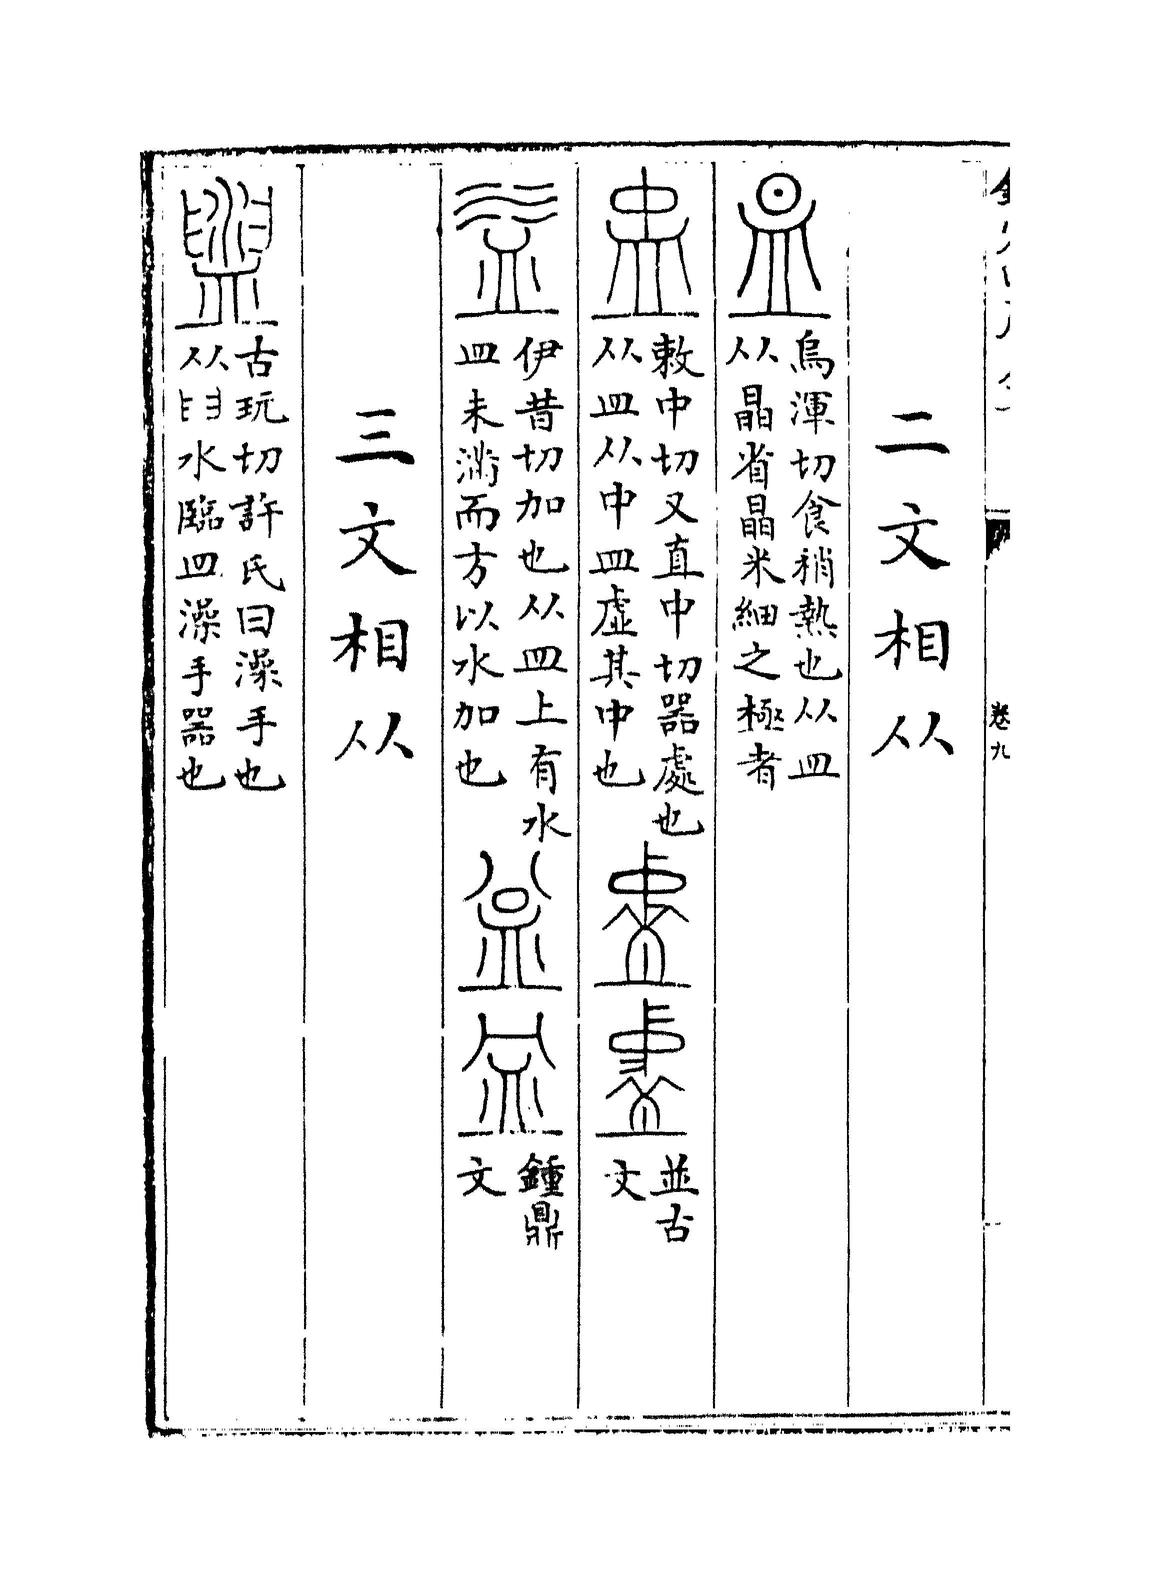 卷九
二文相从
烏渾切食稍熱也从皿
从晶省晶米細之極者
敕中切又直中切器處也
从皿从中皿虛其中也
並古
文
伊昔切加也从皿上有水
皿未滿而方以水加也
鍾鼎
文
三文相从
古玩切許氏曰澡手也
从𦥑水臨皿澡手器也